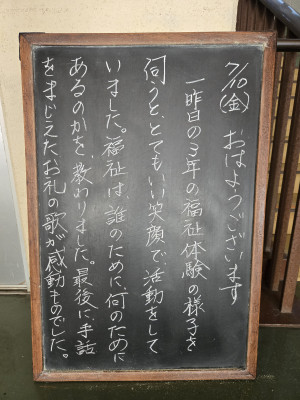 7/10(金) おはようございます
一昨日の3年の福祉体験の様子を
伺うと、とてもいい笑顔で活動をして
いました。福祉は、誰のために、何のために
あるのかを、教わりました。最後に、手話
をまじえた、お礼の歌が感動ものでした。